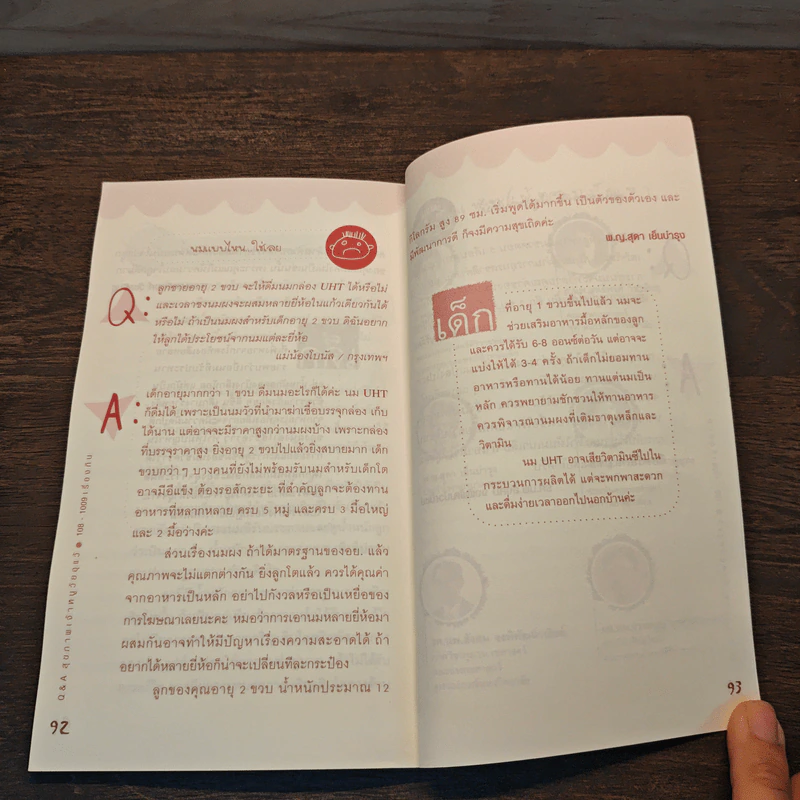 นมแบบไหน...ใช่เลย
Q: ลูกชายอายุ 2 ขวบ จะให้ดื่มนมกล่อง UHT ได้หรือไม่
และเวลาชงนมผงจะผสมหลายยี่ห้อในแก้วเดียวกันได้
หรือไม่ ถ้าเป็นนมผงสำหรับเด็กอายุ 2 ขวบ ดิฉันอยาก
ให้ลูกได้ประโยชน์จากนมแต่ละยี่ห้อ
แม่น้องโบนัส / กรุงเทพฯ
A: เด็กอายุมากกว่า 1 ขวบ ดื่มนมอะไรก็ได้ค่ะ นม UHT
ก็ดื่มได้ เพราะเป็นนมวัวที่นำมาฆ่าเชื้อบรรจุกล่อง เก็บ
ได้นาน แต่อาจจะมีราคาสูงกว่านมผงบ้าง เพราะกล่อง
ที่บรรจุราคาสูง ยิ่งอายุ 2 ขวบไปแล้วยิ่งสบายมาก เด็ก
ขวบกว่าๆ บางคนที่ยังไม่พร้อมรับนมสำหรับเด็กโต
อาจมีอึแข็ง ต้องรอสักระยะ ที่สำคัญลูกจะต้องทาน
อาหารที่หลากหลาย ครบ 5 หมู่ และครบ 3 มื้อใหญ่
และ 2 มื้อว่างค่ะ
ส่วนเรื่องนมผง ถ้าได้มาตรฐานของอย. แล้ว
คุณภาพจะไม่แตกต่างกัน ยิ่งลูกโตแล้ว ควรได้คุณค่า
จากอาหารเป็นหลัก อย่าไปกังวลหรือเป็นเหยื่อของ
การโฆษณาเลยนะคะ หมอว่าการเอานมหลายยี่ห้อมา
ผสมกันอาจทำให้มีปัญหาเรื่องความสะอาดได้ ถ้า
อยากได้หลายยี่ห้อก็น่าจะเปลี่ยนทีละกระป๋อง
ลูกของคุณอายุ 2 ขวบ น้ำหนักประมาณ 12
Q&A สุขภาพเจ้าหนูวัยคุณวี ● 108 - 1009 เรื่องกิน
92
กิโลกรัม สูง 89 ซม. เริ่มพูดได้มากขึ้น เป็นตัวของตัวเอง และ
มีพัฒนาการดี ก็จงมีความสุขเถิดค่ะ
พ.ญ.สุดา เย็นบำรุง
เด็ก ที่อายุ 1 ขวบขึ้นไปแล้ว นมจะ
ช่วยเสริมอาหารมื้อหลักของลูก
และควรได้รับ 6-8 ออนซ์ต่อวัน แต่อาจจะ
แบ่งให้ได้ 3-4 ครั้ง ถ้าเด็กไม่ยอมทาน
อาหารหรือทานได้น้อย ทานแต่นมเป็น
หลัก ควรพยายามชักชวนให้ทานอาหาร
ควรพิจารณานมผงที่เติมธาตุเหล็กและ
วิตามิน
นม UHT อาจเสียวิตามินซีไปใน
กระบวนการผลิตได้ แต่จะพกพาสะดวก
และดื่มง่ายเวลาออกไปนอกบ้านค่ะ
93